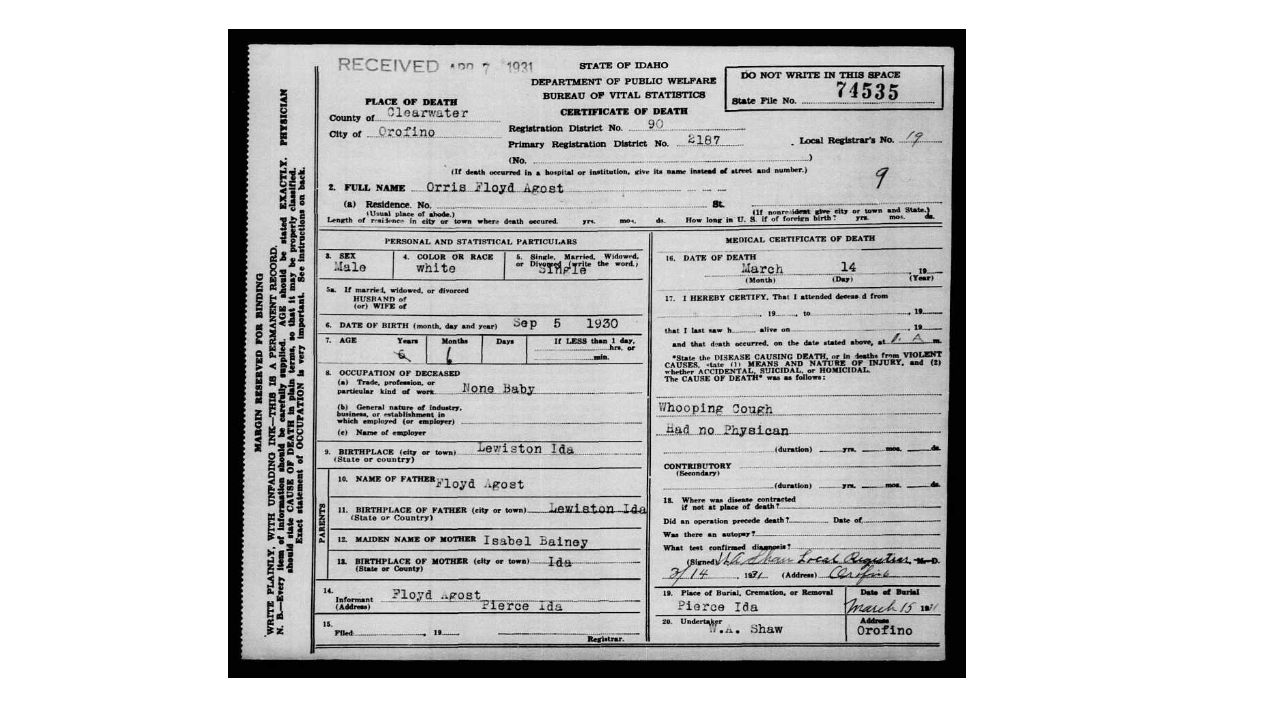 RECEIVED APR 7 1931
STATE OF IDAHO
DEPARTMENT OF PUBLIC WELFARE
BUREAU OF VITAL STATISTICS
CERTIFICATE OF DEATH
DO NOT WRITE IN THIS SPACE
State File No. 74535
PLACE OF DEATH
County of Clearwater
City of Orofino
Registration District No. 90
Primary Registration District No. 2187
Local Registrar's No. 19
(No. )
(If death occurred in a hospital or institution, give its name instead of street and number.)
9
2. FULL NAME Orris Floyd Agost
(a) Residence. No. St.
(Usual place of abode.) (If nonresident give city or town and State.)
Length of residence in city or town where death occured. yrs. mos. ds. How long in U. S. if of foreign birth? yrs. mos. ds.
PERSONAL AND STATISTICAL PARTICULARS
3. SEX Male
4. COLOR OR RACE white
5. Single, Married, Widowed, or Divorced (write the word.) Single
5a. If married, widowed, or divorced
HUSBAND of
(or) WIFE of
6. DATE OF BIRTH (month, day and year) Sep 5 1930
7. AGE Years 6 Months 6 Days If LESS than 1 day, hrs. or min.
8. OCCUPATION OF DECEASED
(a) Trade, profession, or
particular kind of work None Baby
(b) General nature of industry,
business, or establishment in
which employed (or employer)
(c) Name of employer
9. BIRTHPLACE (city or town) Lewiston Ida
(State or country)
PARENTS
10. NAME OF FATHER Floyd Agost
11. BIRTHPLACE OF FATHER (city or town) Lewiston Ida
(State or Country)
12. MAIDEN NAME OF MOTHER Isabel Bainey
13. BIRTHPLACE OF MOTHER (city or town) Ida
(State or County)
14.
Informant Floyd Agost
(Address) Pierce Ida
15.
Filed , 19
Registrar.
MEDICAL CERTIFICATE OF DEATH
16. DATE OF DEATH
March 14 , 19
(Month) (Day) (Year)
17. I HEREBY CERTIFY, That I attended deceas d from
, 19 , to , 19
that I last saw h alive on , 19
and that death occurred, on the date stated above, at A. m.
*State the DISEASE CAUSING DEATH, or in deaths from VIOLENT
CAUSES, state (1) MEANS AND NATURE OF INJURY, and (2)
whether ACCIDENTAL, SUICIDAL, or HOMICIDAL.
The CAUSE OF DEATH* was as follows:
Whooping Cough
Had no Physican
(duration) yrs. mos. ds.
CONTRIBUTORY
(Secondary)
(duration) yrs. mos. ds.
18. Where was disease contracted
if not at place of death?
Did an operation precede death? Date of
Was there an autopsy?
What test confirmed diagnosis?
(Signed) W.A. Shaw Local Registrar, M. D.
3/14 , 1931 (Address) Orofino
19. Place of Burial, Cremation, or Removal Date of Burial
Pierce Ida March 15 1931
20. Undertaker Address
W.A. Shaw Orofino
MARGIN RESERVED FOR BINDING
WRITE PLAINLY, WITH UNFADING INK—THIS IS A PERMANENT RECORD.
N. B.—Every item of information should be carefully supplied. AGE should be stated EXACTLY. PHYSICIAN
should state CAUSE OF DEATH in plain terms, so that it may be properly classified.
Exact statement of OCCUPATION is very important. See instructions on back.